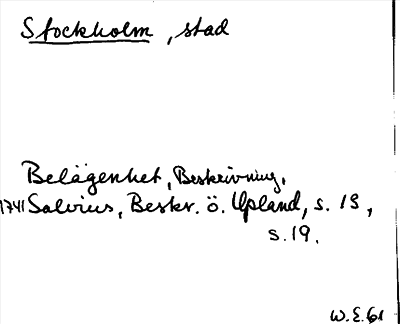 Stockholm, stad
Belägenhet, Beskrivning.
1741 Salvius, Beskr. ö. Upland, s. 13,
s. 19.
W.E.61